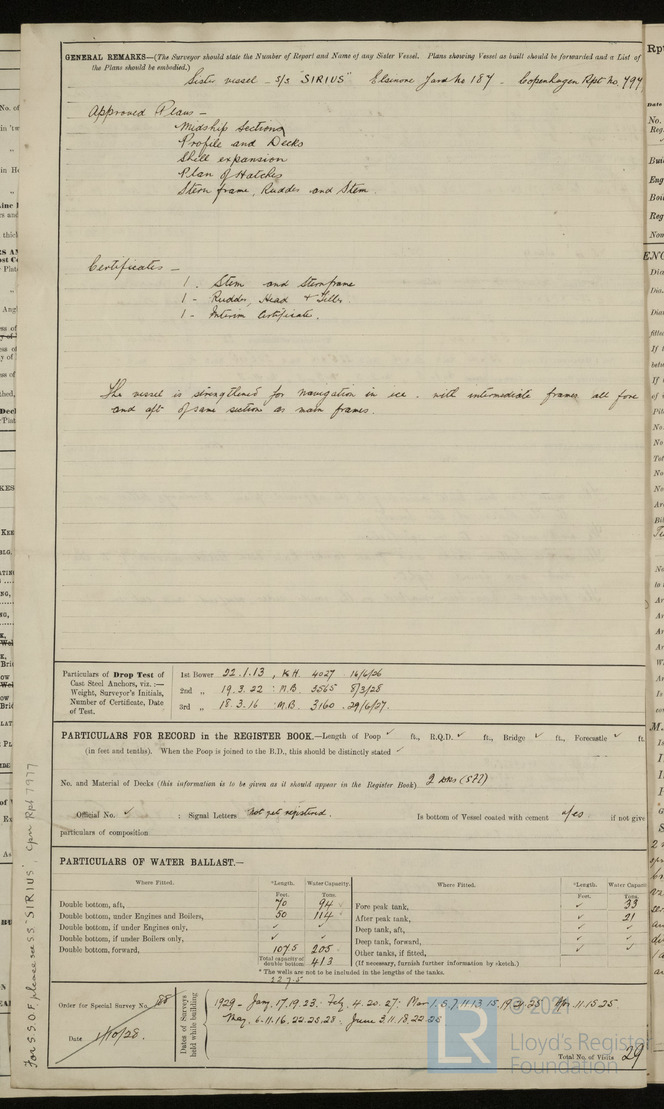 GENERAL REMARKS—(The Surveyor should state the Number of Report and Name of any Sister Vessel. Plans showing Vessel as built should be forwarded and a List of
the Plans should be embodied.)
Sister vessel - S/S "SIRIUS" Elsinore Yard No 187 - Copenhagen Rpt No. 797
Approved Plans -
Midship Section
Profile and Decks
Shell expansion
Plan of Hatches
Stern frame, Rudder and Stem.
Certificates -
1. Stem and Sternframe
1 - Rudder, Head & Tiller
1 - Interim Certificate.
The vessel is strengthened for navigation in ice. with intermediate frames all fore
and aft of same section as main frames.
Particulars of Drop Test of
Cast Steel Anchors, viz.:—
Weight, Surveyor's Initials,
Number of Certificate, Date
of Test.
1st Bower 22.1.13, K.H. 4027 16/6/26
2nd „ 19.3.22 M.B. 3565 8/3/28
3rd „ 18.3.16 M.B. 3160 29/6/27.
PARTICULARS FOR RECORD in the REGISTER BOOK.—Length of Poop ✓ ft., R.Q.D. ✓ ft., Bridge ✓ ft., Forecastle ✓ ft.
(in feet and tenths). When the Poop is joined to the B.D., this should be distinctly stated ✓
No. and Material of Decks (this information is to be given as it should appear in the Register Book) 2 Dks
Official No. ✓ : Signal Letters Not yet registered. Is bottom of Vessel coated with cement yes if not give
particulars of composition
PARTICULARS OF WATER BALLAST.—
Where Fitted. *Length. Water Capacity. Where Fitted. *Length. Water Capaci
Feet. Tons. Feet. Tons.
Double bottom, aft, 70 94 Fore peak tank, ✓ 33
Double bottom, under Engines and Boilers, 50 114 After peak tank, ✓ 21
Double bottom, if under Engines only, ✓ ✓ Deep tank, aft, ✓ ✓
Double bottom, if under Boilers only, ✓ ✓ Deep tank, forward, ✓ ✓
Double bottom, forward, 107.5 205 Other tanks, if fitted, ✓ ✓
Total capacity of double bottom 413 (If necessary, furnish further information by sketch.)
* The wells are not to be included in the lengths of the tanks.
227.5
Order for Special Survey No. 88
Date 1/10/28.
Dates of Surveys held while building
1929 - Jany. 17.19.23. Feby. 4.20.27. Mar 1.5.7.11.13.15.19.21.25 Apr. 11.15.25
May. 6.11.16.22.25.28. June 3.11.18.22.25
Total No. of Visits 29
For S.S.O.F. please see S.S. "SIRIUS", Cpn Rpt 7977
© 2021
LR
Lloyd's Register
Foundation